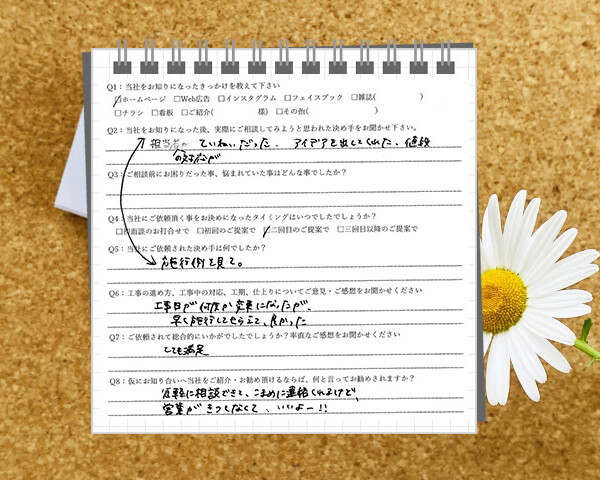 Q1：当社をお知りになったきっかけを教えて下さい
☑ホームページ □Web広告 □インスタグラム □フェイスブック □雑誌( )
□チラシ □看板 □ご紹介( 様) □その他( )
Q2：当社をお知りになった後、実際にご相談してみようと思われた決め手をお聞かせ下さい。
担当者の ていねいだった、アイデアを出してくれた、値段
の対応が
Q3：ご相談前にお困りだった事、悩まれていた事はどんな事でしたか？
Q4：当社にご依頼頂く事をお決めになったタイミングはいつでしたでしょうか？
□初面談のお打合せで □初回のご提案で ☑二回目のご提案で □三回目以降のご提案で
Q5：当社にご依頼された決め手は何でしたか？
施行例を見て。
Q6：工事の進め方、工事中の対応、工期、仕上りについてご意見・ご感想をお聞かせください
工事日が何度か変更になったが、
早く施行してもらえて、良かった
Q7：ご依頼されて総合的にいかがでしたでしょうか？率直なご感想をお聞かせください
とても満足
Q8：仮にお知り合いへ当社をご紹介・お勧め頂けるならば、何と言ってお勧めされますか？
気軽に相談できて、こまめに連絡くれるけど、
営業がきつくなくて、いいよー!!